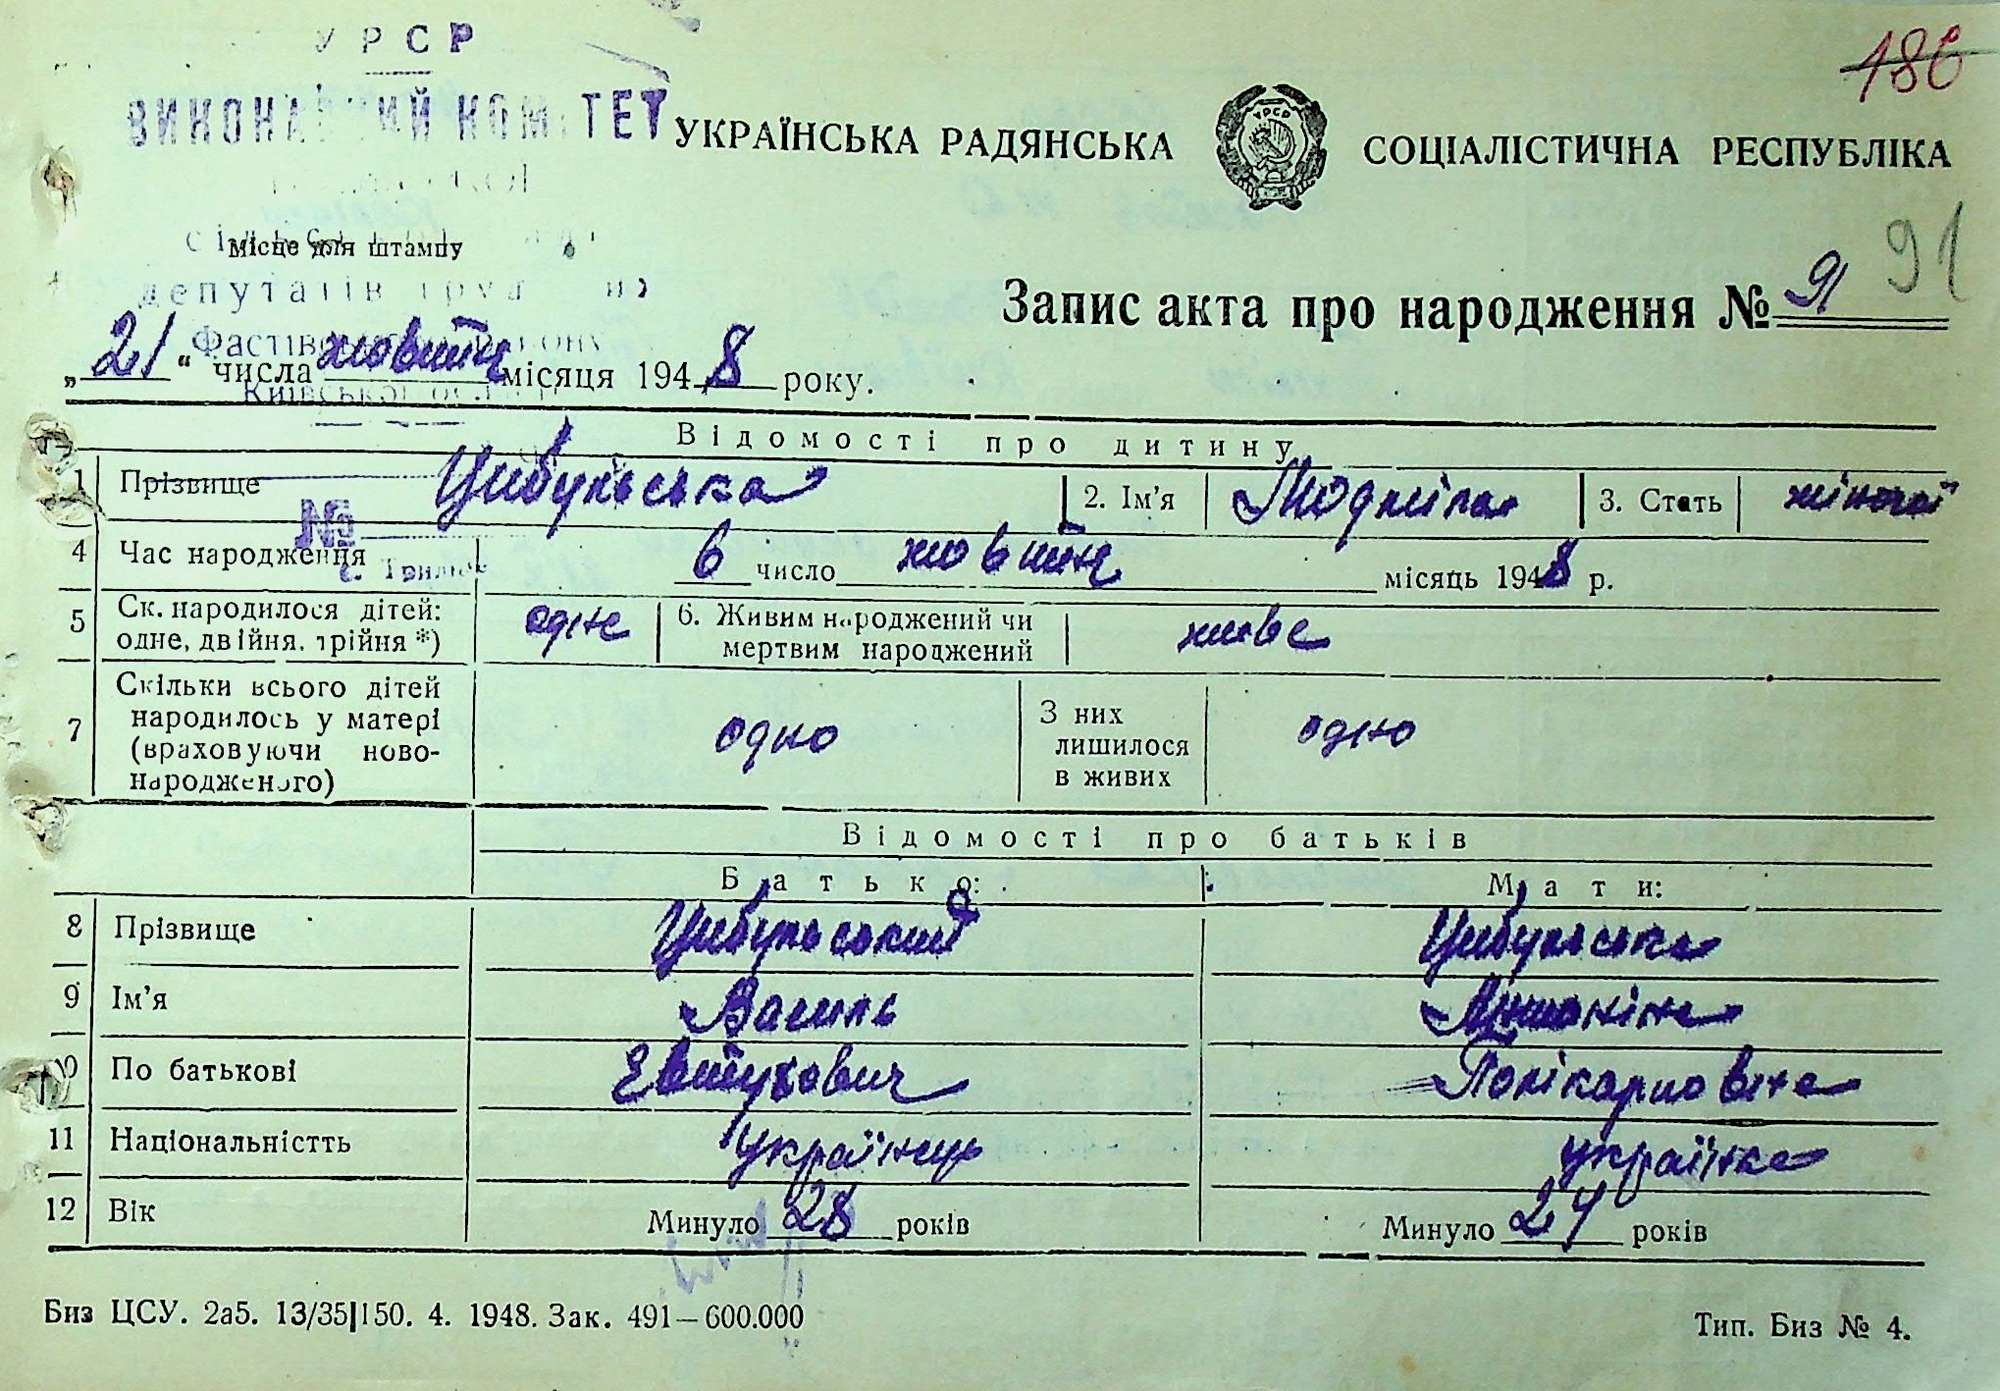 УРСР
186
ВИКОНА ИЙ КОМІТЕТ
УКРАЇНСЬКА РАДЯНСЬКА СОЦІАЛІСТИЧНА РЕСПУБЛІКА
УРСР
Місце для штампу
91
депутатів
Запис акта про народження № 91
„21“ числа жовтн місяця 1948 року.
Київської
Відомості про дитину
1 Прізвище Цибульська 2. Ім'я Людміла 3. Стать жіночої
№
4 Час народження 6 число жовтн місяць 1948 р.
5 Ск. народилося дітей: одне, двійня, трійня *) одне 6. Живим народжений чи мертвим народжений живе
7 Скільки всього дітей народилось у матері (враховуючи новонародженого) одно З них лишилося в живих одно
Відомості про батьків
Батько: Мати:
8 Прізвище Цибульський Цибульська
9 Ім'я Василь
10 По батькові Евтухович Полікарповна
11 Національністть українець українка
12 Вік Минуло 28 років Минуло 24 років
Биз ЦСУ. 2а5. 13/35|150. 4. 1948. Зак. 491—600.000
Тип. Биз № 4.